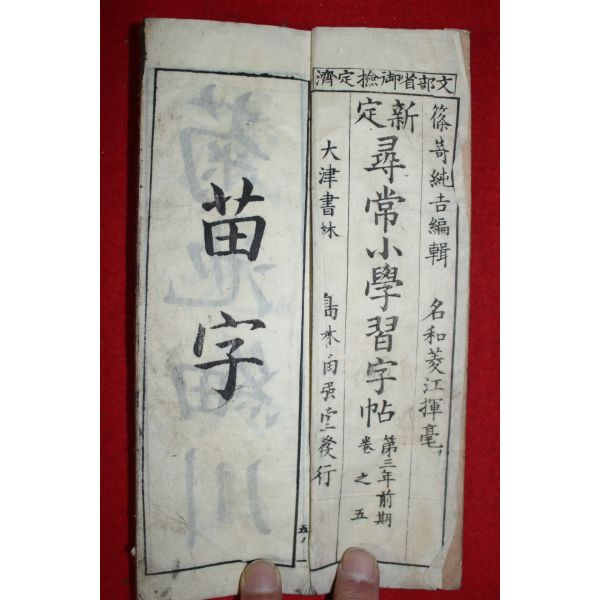 文部省御撿定濟
篠嵜純吉編輯 名和菱江揮毫
新定
尋常小學習字帖
第三年前期
卷之五
大津書林
發行
苗字
五ノ一